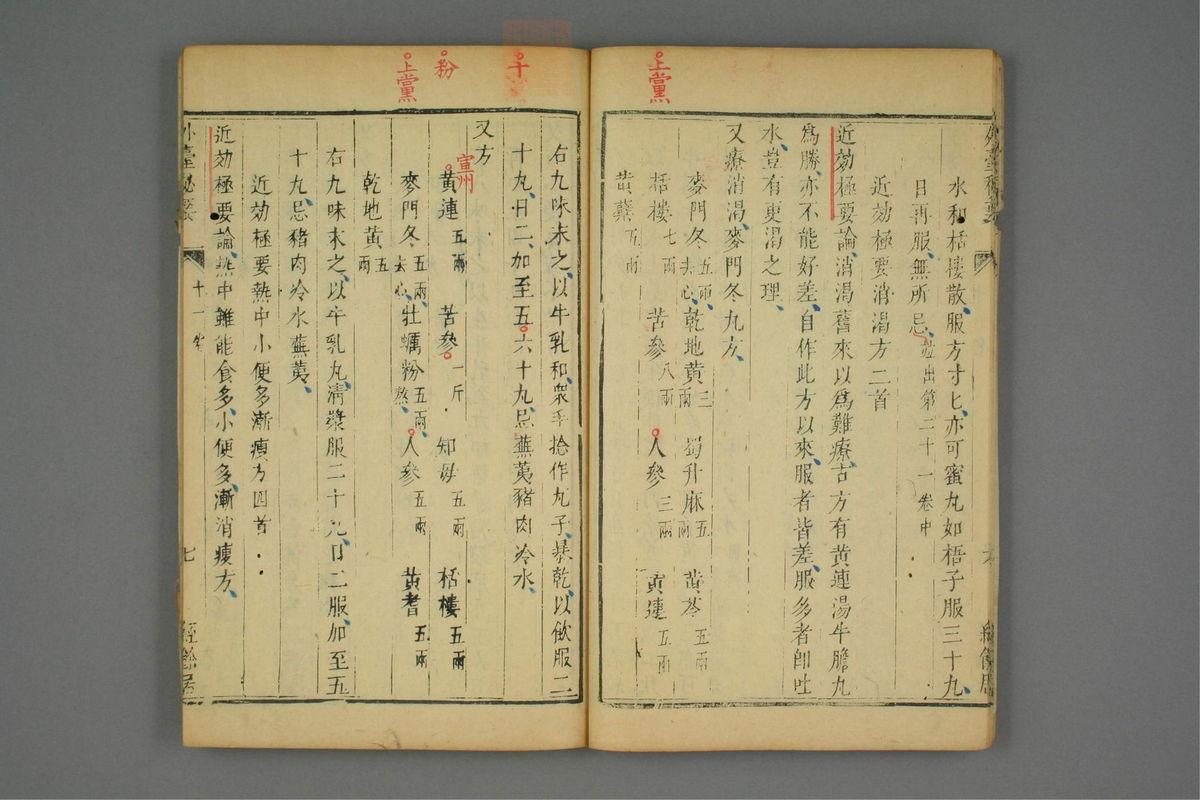 上黨
水和栝樓散服方寸匕亦可蜜丸如梧子服三十丸
日再服無所忌並出第二十一卷中
近効極要消渴方二首
近効極要論消渴舊來以為難療古方有黃連湯牛膽丸
為勝亦不能好差自作此方以來服者皆差服多者即吐
水豈有更渴之理
又療消渴麥門冬丸方
麥門冬五兩去心 乾地黃三兩 蜀升麻五兩 黃芩五兩
栝樓七兩 苦參八兩 人參三兩 黃連五兩
黃蘗五兩
十
粉
上黨
右九味末之以牛乳和衆手捻作丸子暴乾以飲服二
十丸日二加至五六十丸忌蕪荑豬肉冷水
又方
宣州
黃連五兩 苦參一斤 知母五兩 栝樓五兩
麥門冬五兩去心 牡蠣粉五兩熬 人參五兩 黃耆五兩
乾地黃五兩
右九味末之以牛乳丸清漿服二十丸日二服加至五
十丸忌豬肉冷水蕪荑
近効極要熱中小便多漸瘦方四首
近効極要論熱中雖能食多小便多漸消瘦方
外臺秘要 十一卷 七 經餘居